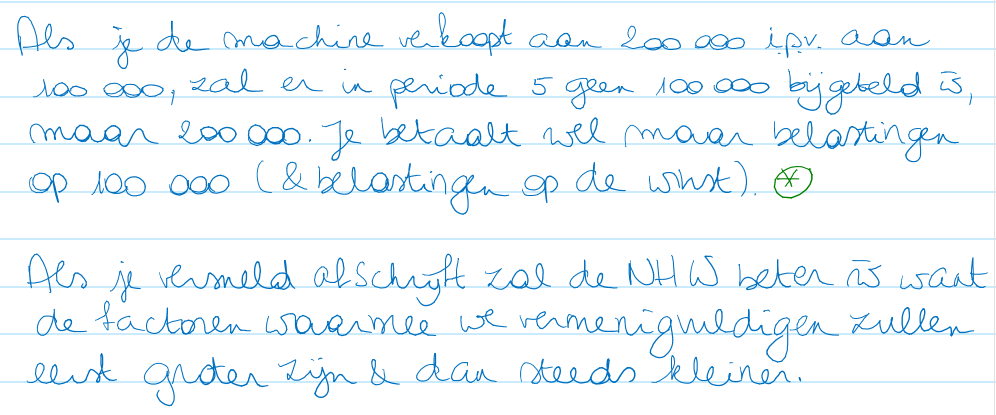 Als je de machine verkoopt aan 200 000 i.p.v. aan
100 000, zal er in periode 5 geen 100 000 bijgeteld w̄,
maar 200 000. Je betaalt wel maar belastingen
op 100 000 (& belastingen op de winst). *
Als je versneld afschrijft zal de NHW beter w̄ want
de factoren waarmee we vermenigvuldigen zullen
eerst groter zijn & dan steeds kleiner.